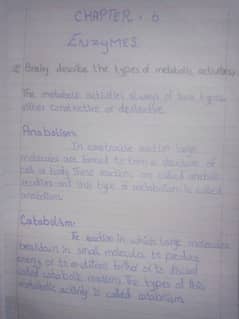 CHAPTER . 6
ENZYMES
Briefly describe the types of metabolic activities.
The metabolic activities always of two types
either constructive or destructive.
Anabolism:
In constructive reaction large
molecules are formed to form a structure of
cell or body These reactions are called anabolic
reactions and this type of metabolism is called
anabolism.
Catabolism:
The reaction in which large molecules
breakdown in small molecules to produce
energy or to
called catabolic reactions The types of this
metabolic activity is called catabolism